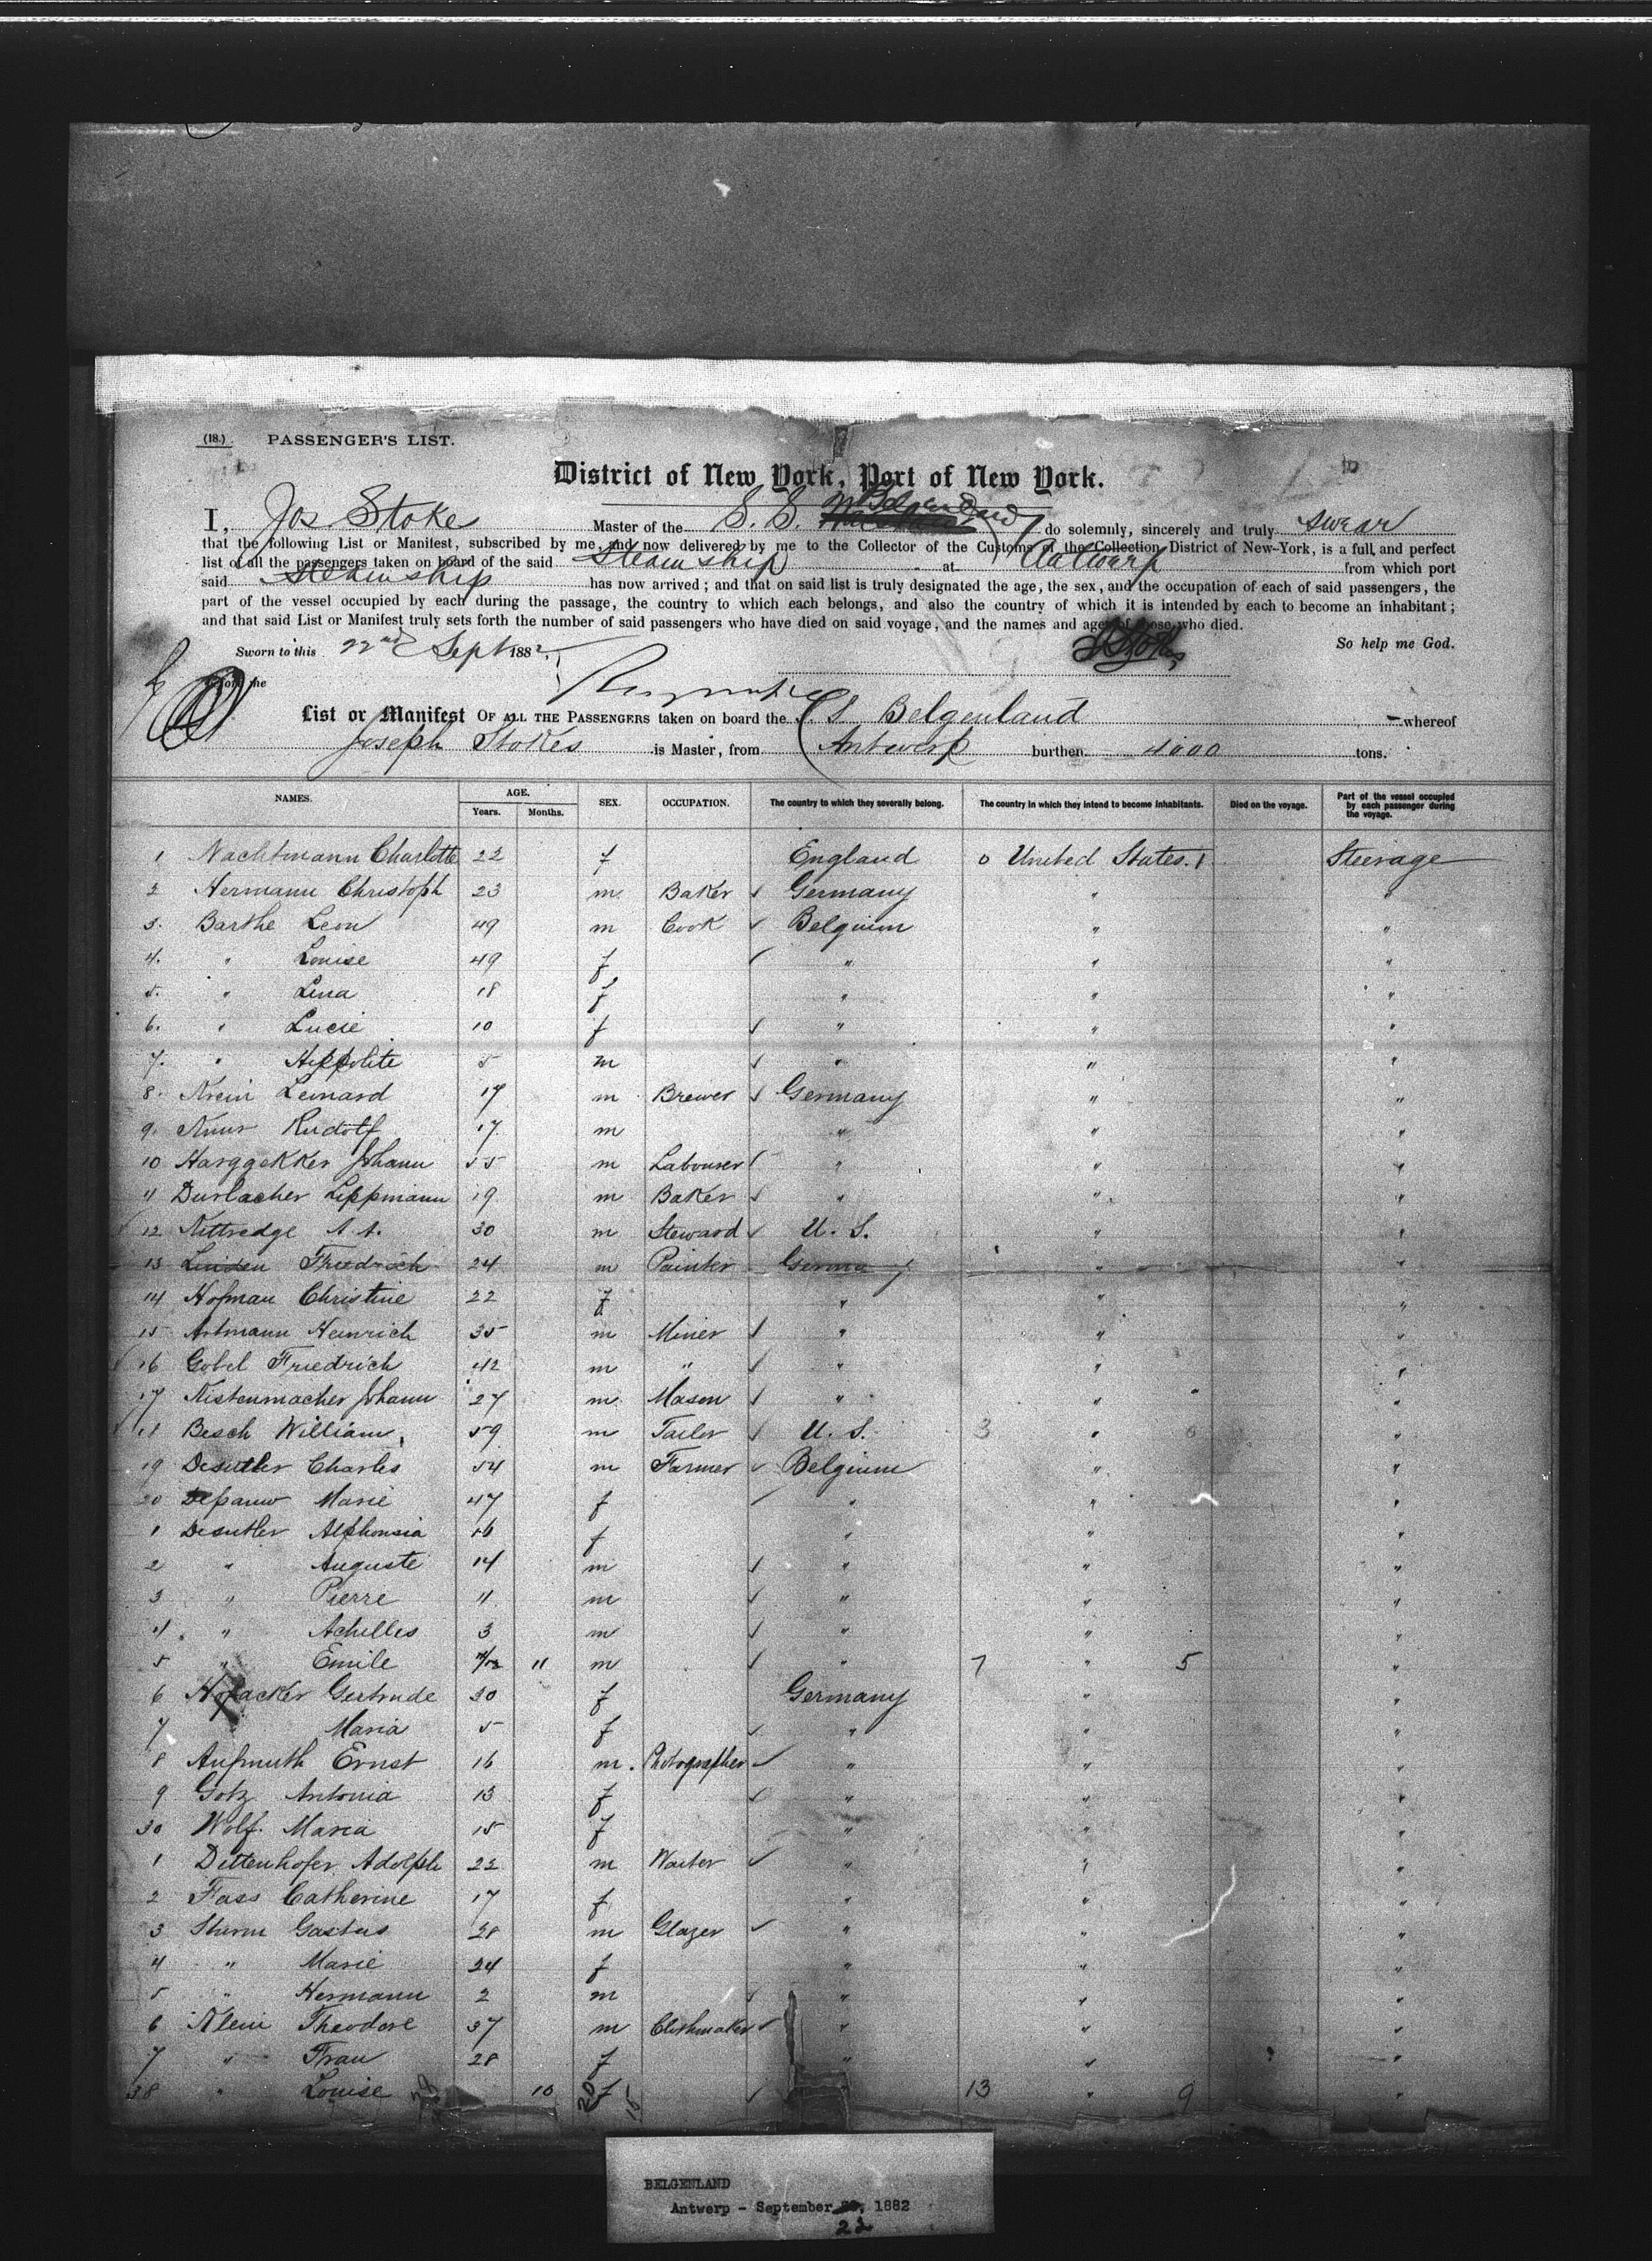 (18.) PASSENGER'S LIST.
District of New York, Port of New York.
I, Jos Stoke Master of the S. S. Belgenland do solemnly, sincerely and truly swear
that the following List or Manifest, subscribed by me, and now delivered by me to the Collector of the Customs of the Collection District of New-York, is a full and perfect
list of all the passengers taken on board of the said Steamship at Antwerp from which port
said Steamship has now arrived; and that on said list is truly designated the age, the sex, and the occupation of each of said passengers, the
part of the vessel occupied by each during the passage, the country to which each belongs, and also the country of which it is intended by each to become an inhabitant;
and that said List or Manifest truly sets forth the number of said passengers who have died on said voyage, and the names and ages of those who died.
Sworn to this 22nd Sept 1882 J Stokes So help me God.
before me
List or Manifest OF ALL THE PASSENGERS taken on board the S. S. Belgenland whereof
Joseph Stokes is Master, from Antwerp burthen 4000 tons.
NAMES. AGE. SEX. OCCUPATION. The country to which they severally belong. The country in which they intend to become inhabitants. Died on the voyage. Part of the vessel occupied by each passenger during the voyage.
Years. Months.
1 Nachtmann Charlotte 22 f England 0 United States. 1 Steerage
2 Hermann Christoph 23 m Baker Germany " "
3. Barthe Leon 49 m Cook Belgium " "
4. " Louise 49 f " " "
5. " Lina 18 f " " "
6. " Lucie 10 f " " "
7. " Hippolite 5 m " " "
8. Krein Leinard 17 m Brewer Germany " "
9. Knur Rudolf 17 m " " "
10 Harggekker Johann 55 m Labourer " " "
11 Durlacher Lippmann 19 m Baker " " "
12 Kittredge A. A. 30 m Steward U. S. " "
13 Linden Friedrich 24 m Painter Germany " "
14 Hofman Christine 22 f " " "
15 Artmann Heinrich 35 m Miner " " "
16 Gobel Friedrich 42 m " " " "
17 Kistenmacher Johann 27 m Mason " " "
18 Besch William 59 m Tailor U. S. 3 " 0 "
19 Desutler Charles 54 m Farmer Belgium " "
20 Depauw Marie 47 f " " "
1 Desutler Alphonsia 16 f " " "
2 " Auguste 14 m " " "
3 " Pierre 11 m " " "
4 " Achilles 3 m " " "
5 " Emile 11/12 11 m " 7 " 5 "
6 Hofacker Gertrude 30 f Germany " "
7 " Maria 5 f " " "
8 Aufmuth Ernst 16 m. Photographer " " "
9 Gotz Antonia 13 f " " "
30 Wolf. Maria 15 f " " "
1 Dittenhofer Adolph 22 m Waiter " " "
2 Fass Catherine 17 f " " "
3 Sturm Gastus 28 m Glazer " " "
4 " Marie 24 f " " "
5 " Hermann 2 m " " "
6 Klein Theodore 37 m Clothmaker " " "
7 " Frau 28 f " " "
38 " Louise 10 f " 13 " 9 "
BELGENLAND
Antwerp - September 1882
22